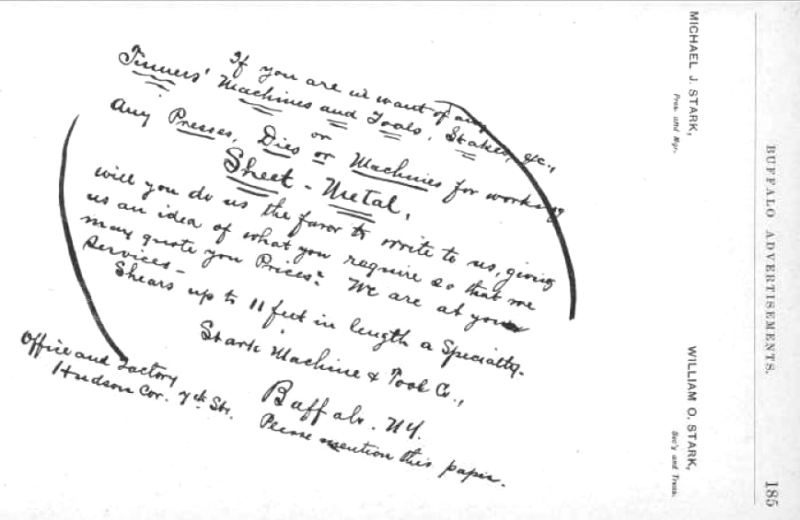 BUFFALO ADVERTISEMENTS. 185
MICHAEL J. STARK,
Pres. and Mgr.
WILLIAM O. STARK,
Sec'y and Treas.
If you are in want of any
Tinners' Machines and Tools, Stakes, &c.,
or
any Presses, Dies or Machines for working
Sheet-Metal,
will you do us the favor to write to us, giving
us an idea of what you require so that we
may quote you Prices? We are at your
Services-
Shears up to 11 feet in length a Specialty.
Stark Machine & Tool Co.,
Office and Factory
Hudson Cor. 7th Str.
Buffalo. N.Y.
Please mention this paper.